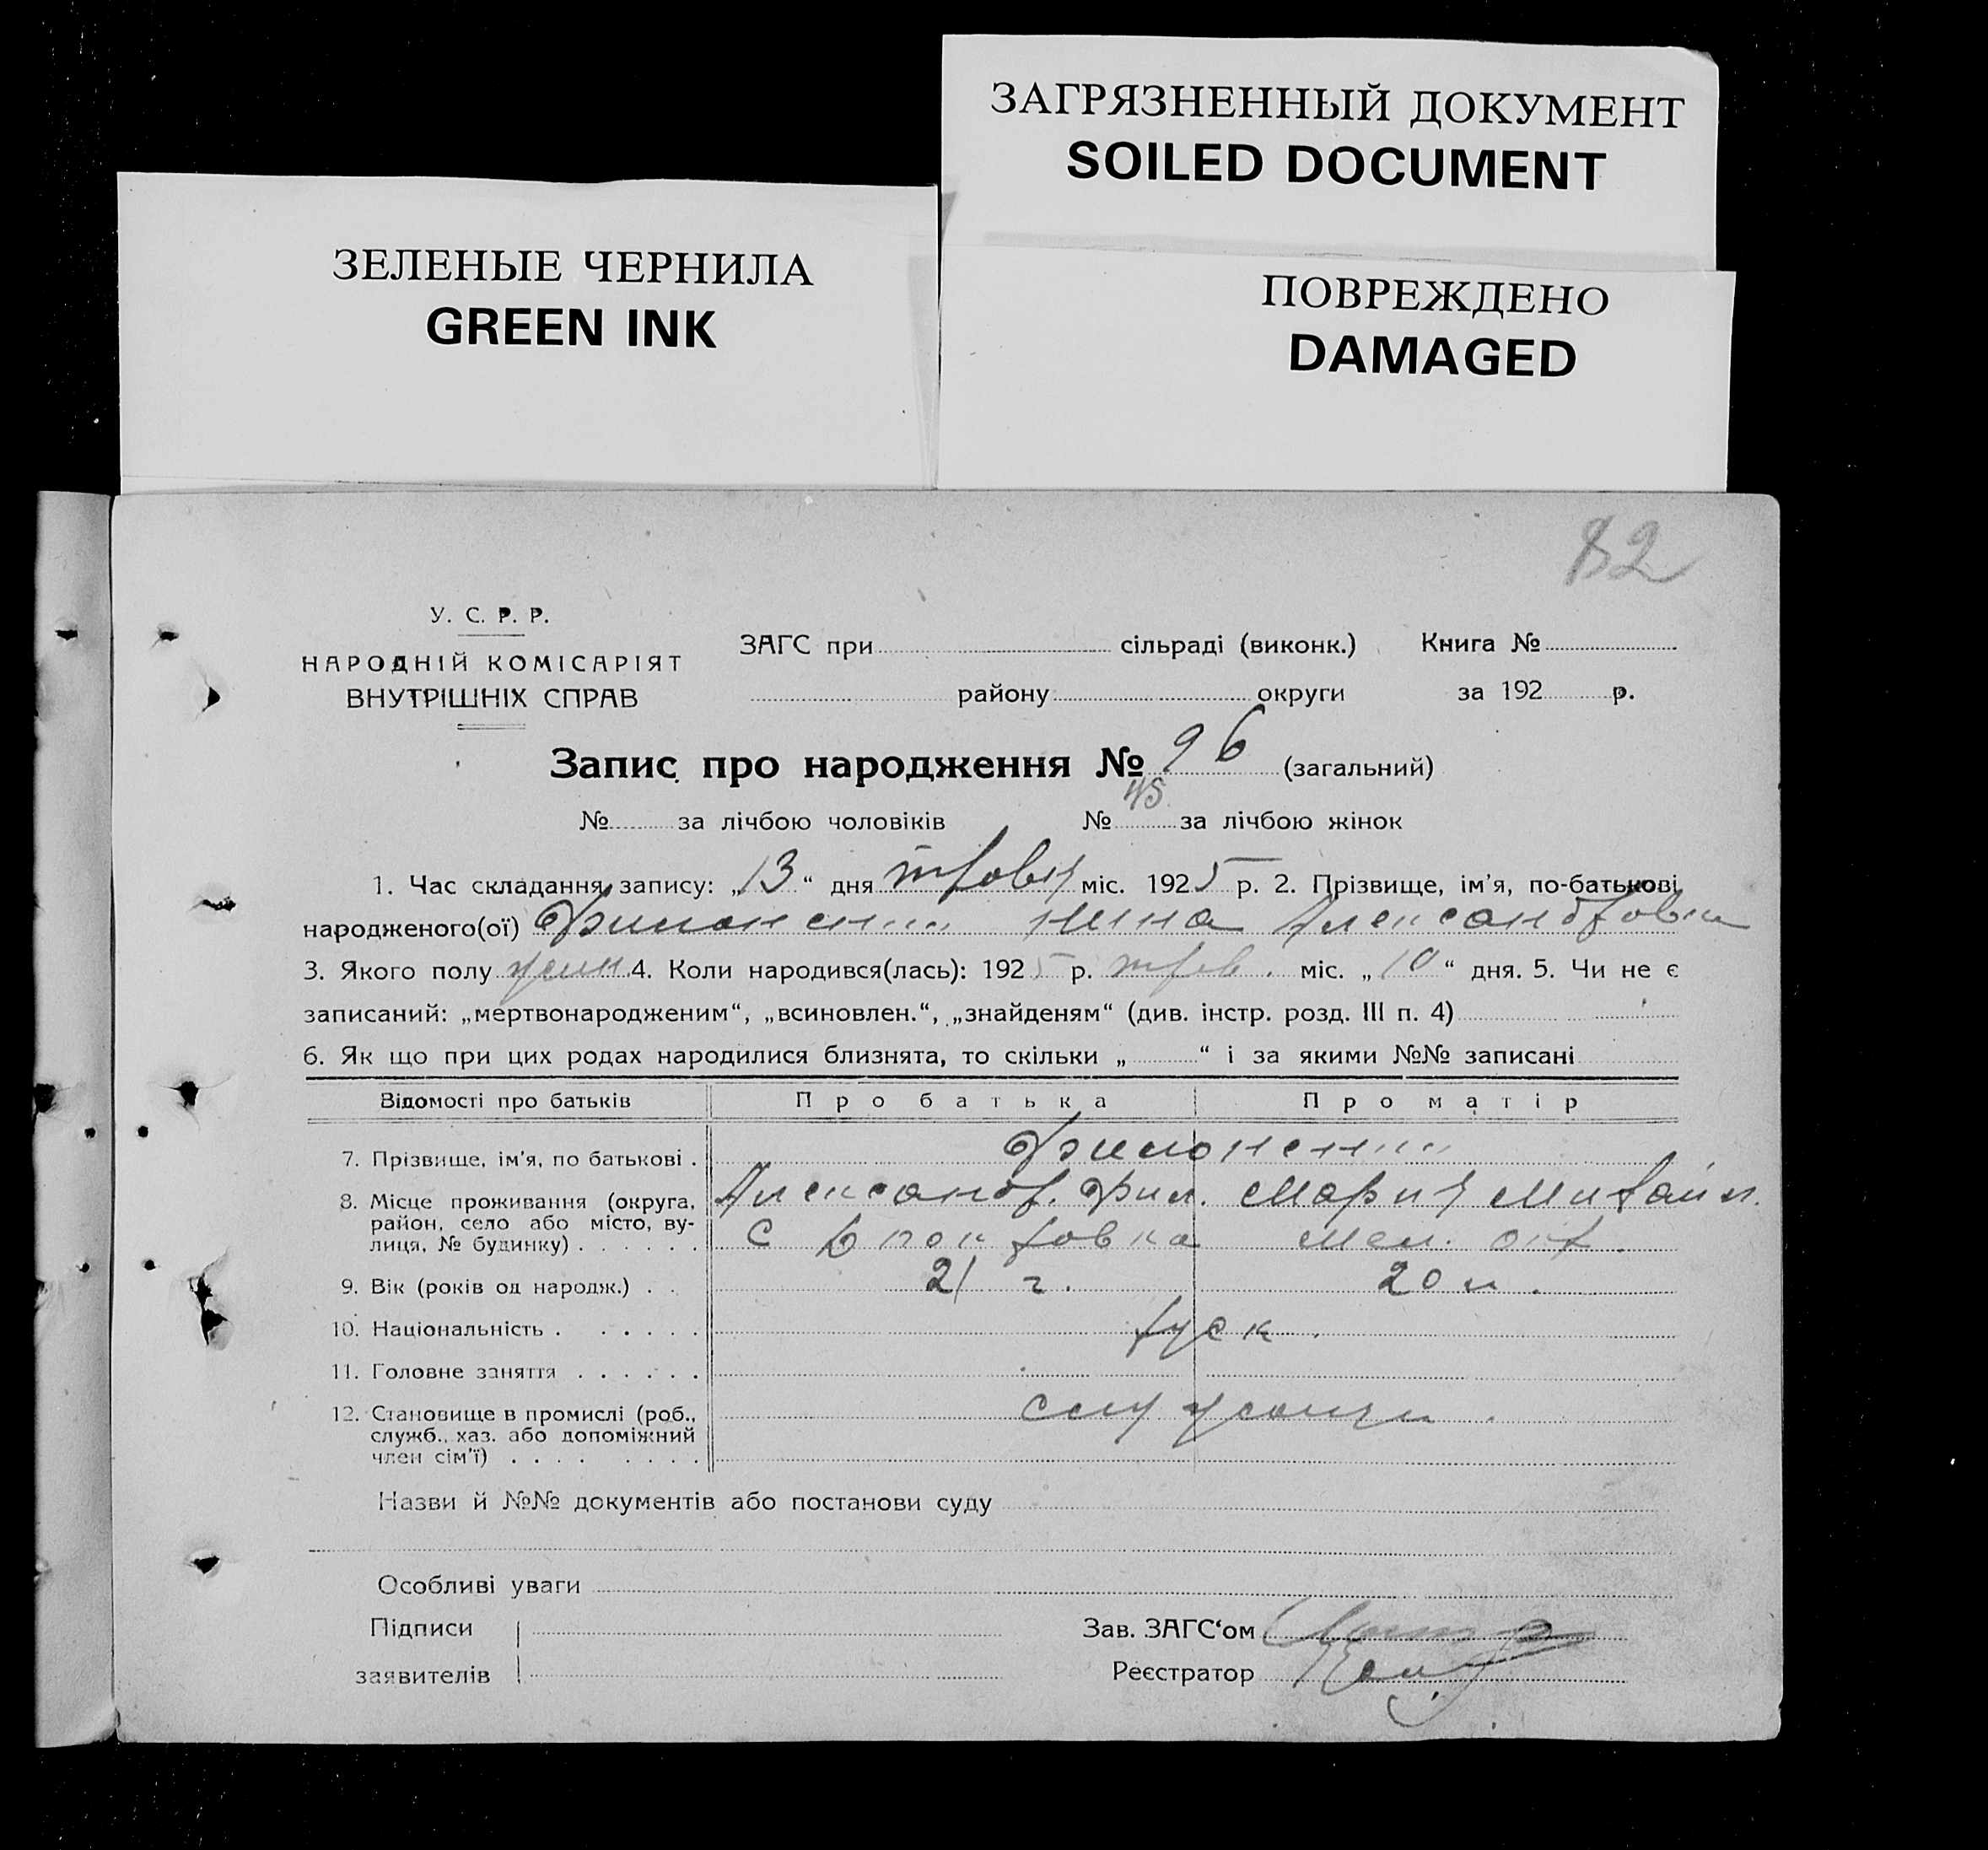 ЗАГРЯЗНЕННЫЙ ДОКУМЕНТ
SOILED DOCUMENT
ЗЕЛЕНЫЕ ЧЕРНИЛА
GREEN INK
ПОВРЕЖДЕНО
DAMAGED
82
У. С. Р. Р.
НАРОДНІЙ КОМІСАРІЯТ
ВНУТРІШНІХ СПРАВ
ЗАГС при сільраді (виконк.) Книга №
району округи за 192 р.
Запис про народження № 96 (загальний)
№ за лічбою чоловіків № 45 за лічбою жінок
1. Час складання запису: „13“ дня травня міс. 1925 р. 2. Прізвище, ім'я, по-батькові
народженого(ої) Филоненко Нина Александровна
3. Якого полу жен 4. Коли народився(лась): 1925 р. трав. міс. „10“ дня. 5. Чи не є
записаний: „мертвонародженим“, „всиновлен.“, „знайденям“ (див. інстр. розд. III п. 4)
6. Як що при цих родах народилися близнята, то скільки „ “ і за якими №№ записані
Відомості про батьків Про батька Про матір
7. Прізвище, ім'я, по батькові . Филоненко
8. Місце проживання (округа, Александр. Фил. Мария Михайл.
район, село або місто, ву-
лиця, № будинку) . . . . . . с мел. окр.
9. Вік (років од народж.) . . 21 г. 20 л.
10. Національність . . . . . . руск.
11. Головне заняття . . . . . .
12. Становище в промислі (роб., служащи.
служб., хаз. або допоміжний
член сім'ї) . . . . . . . .
Назви й №№ документів або постанови суду
Особливі уваги
Підписи Зав. ЗАГС‘ом
заявителів Реєстратор